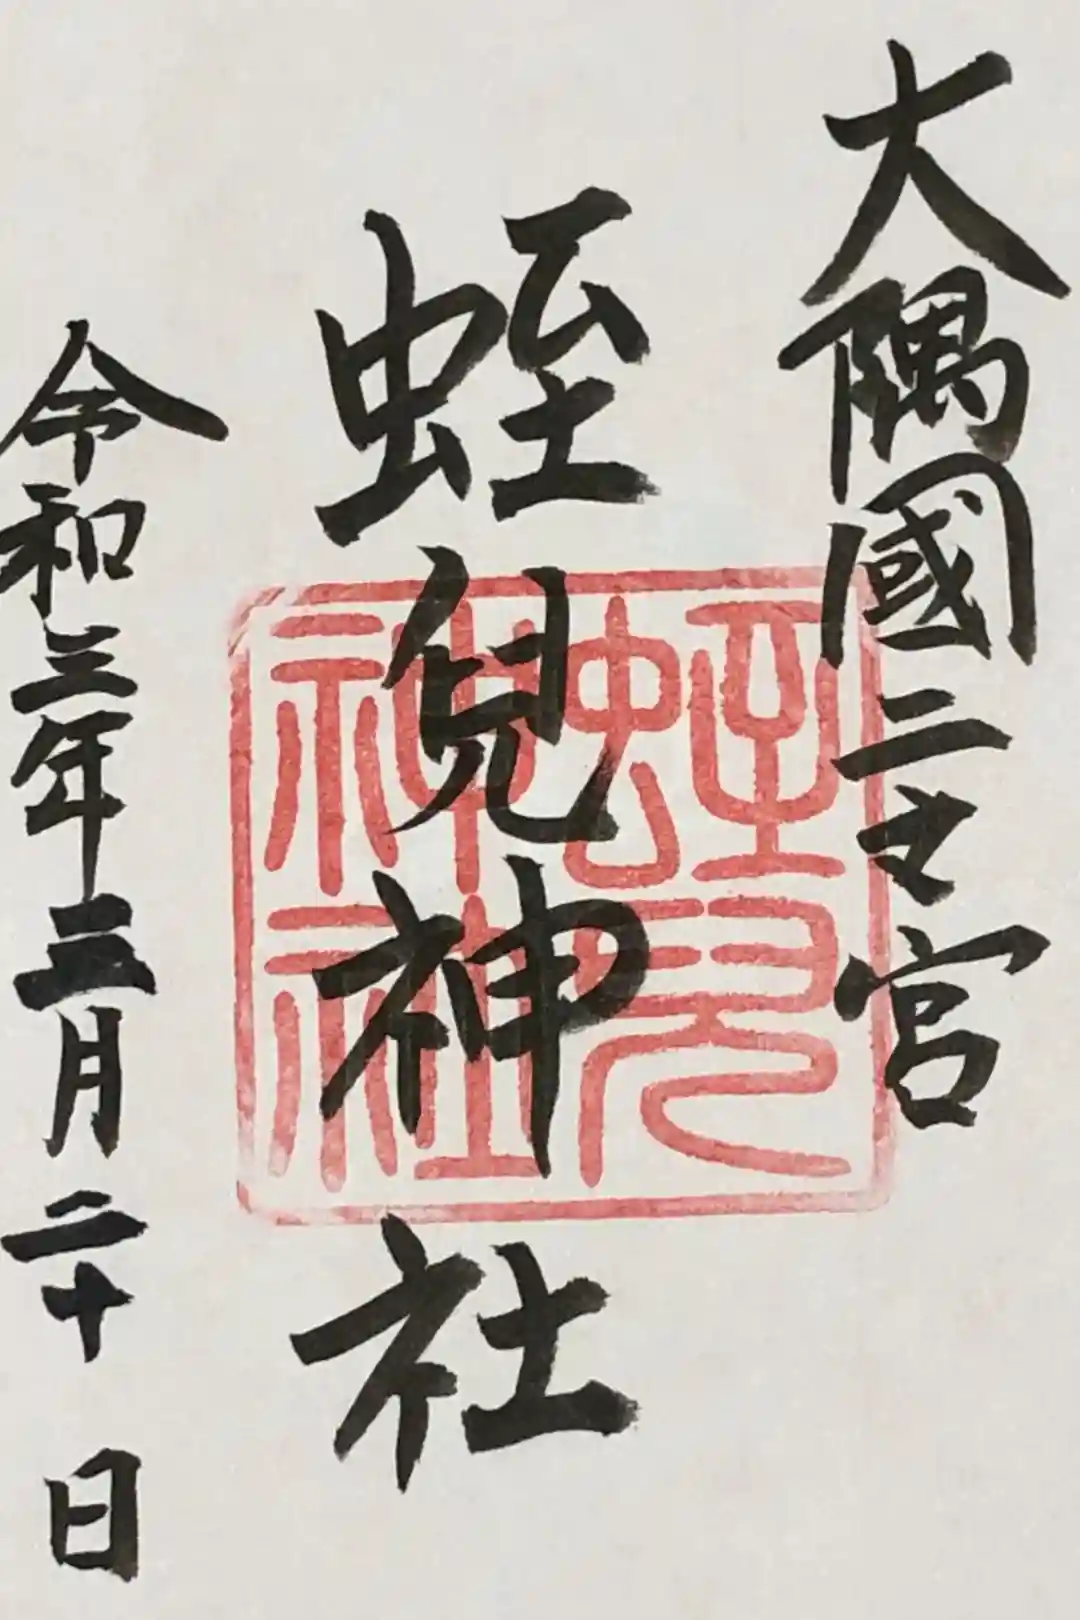 大隅國二之宮
蛭兒神社
蛭兒神社
令和三年三月二十日